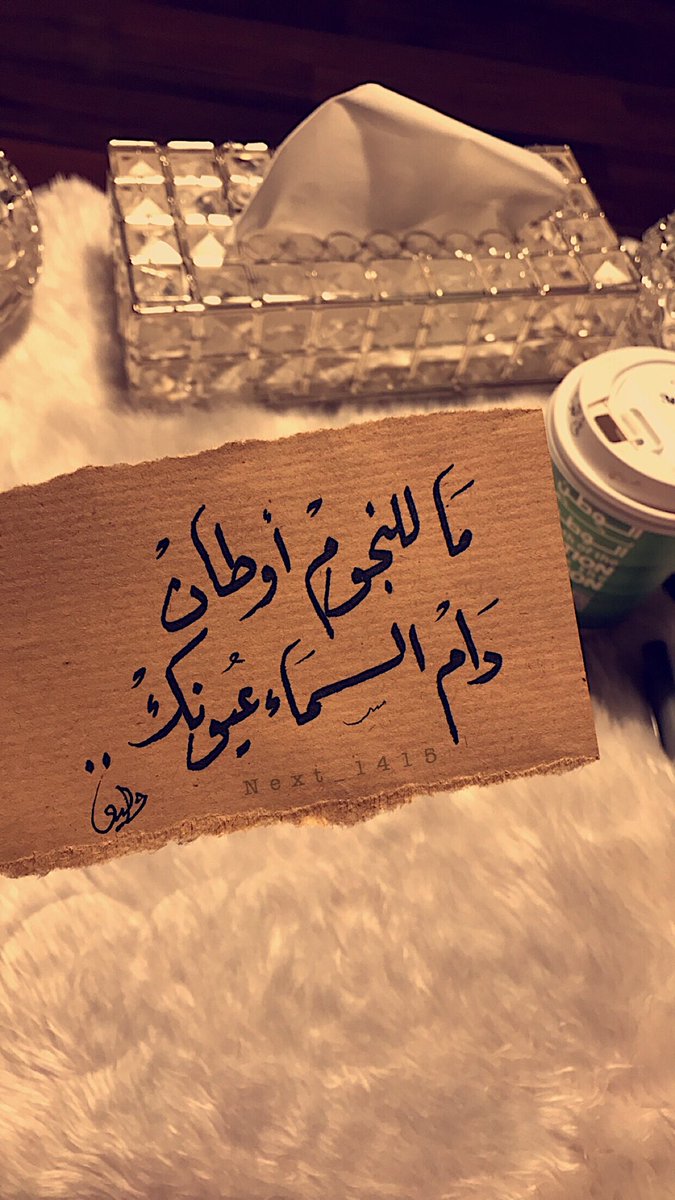 مَا للنجومْ أوطانْ
دَامْ السمَاء عيُونكْ ..
Next_1415